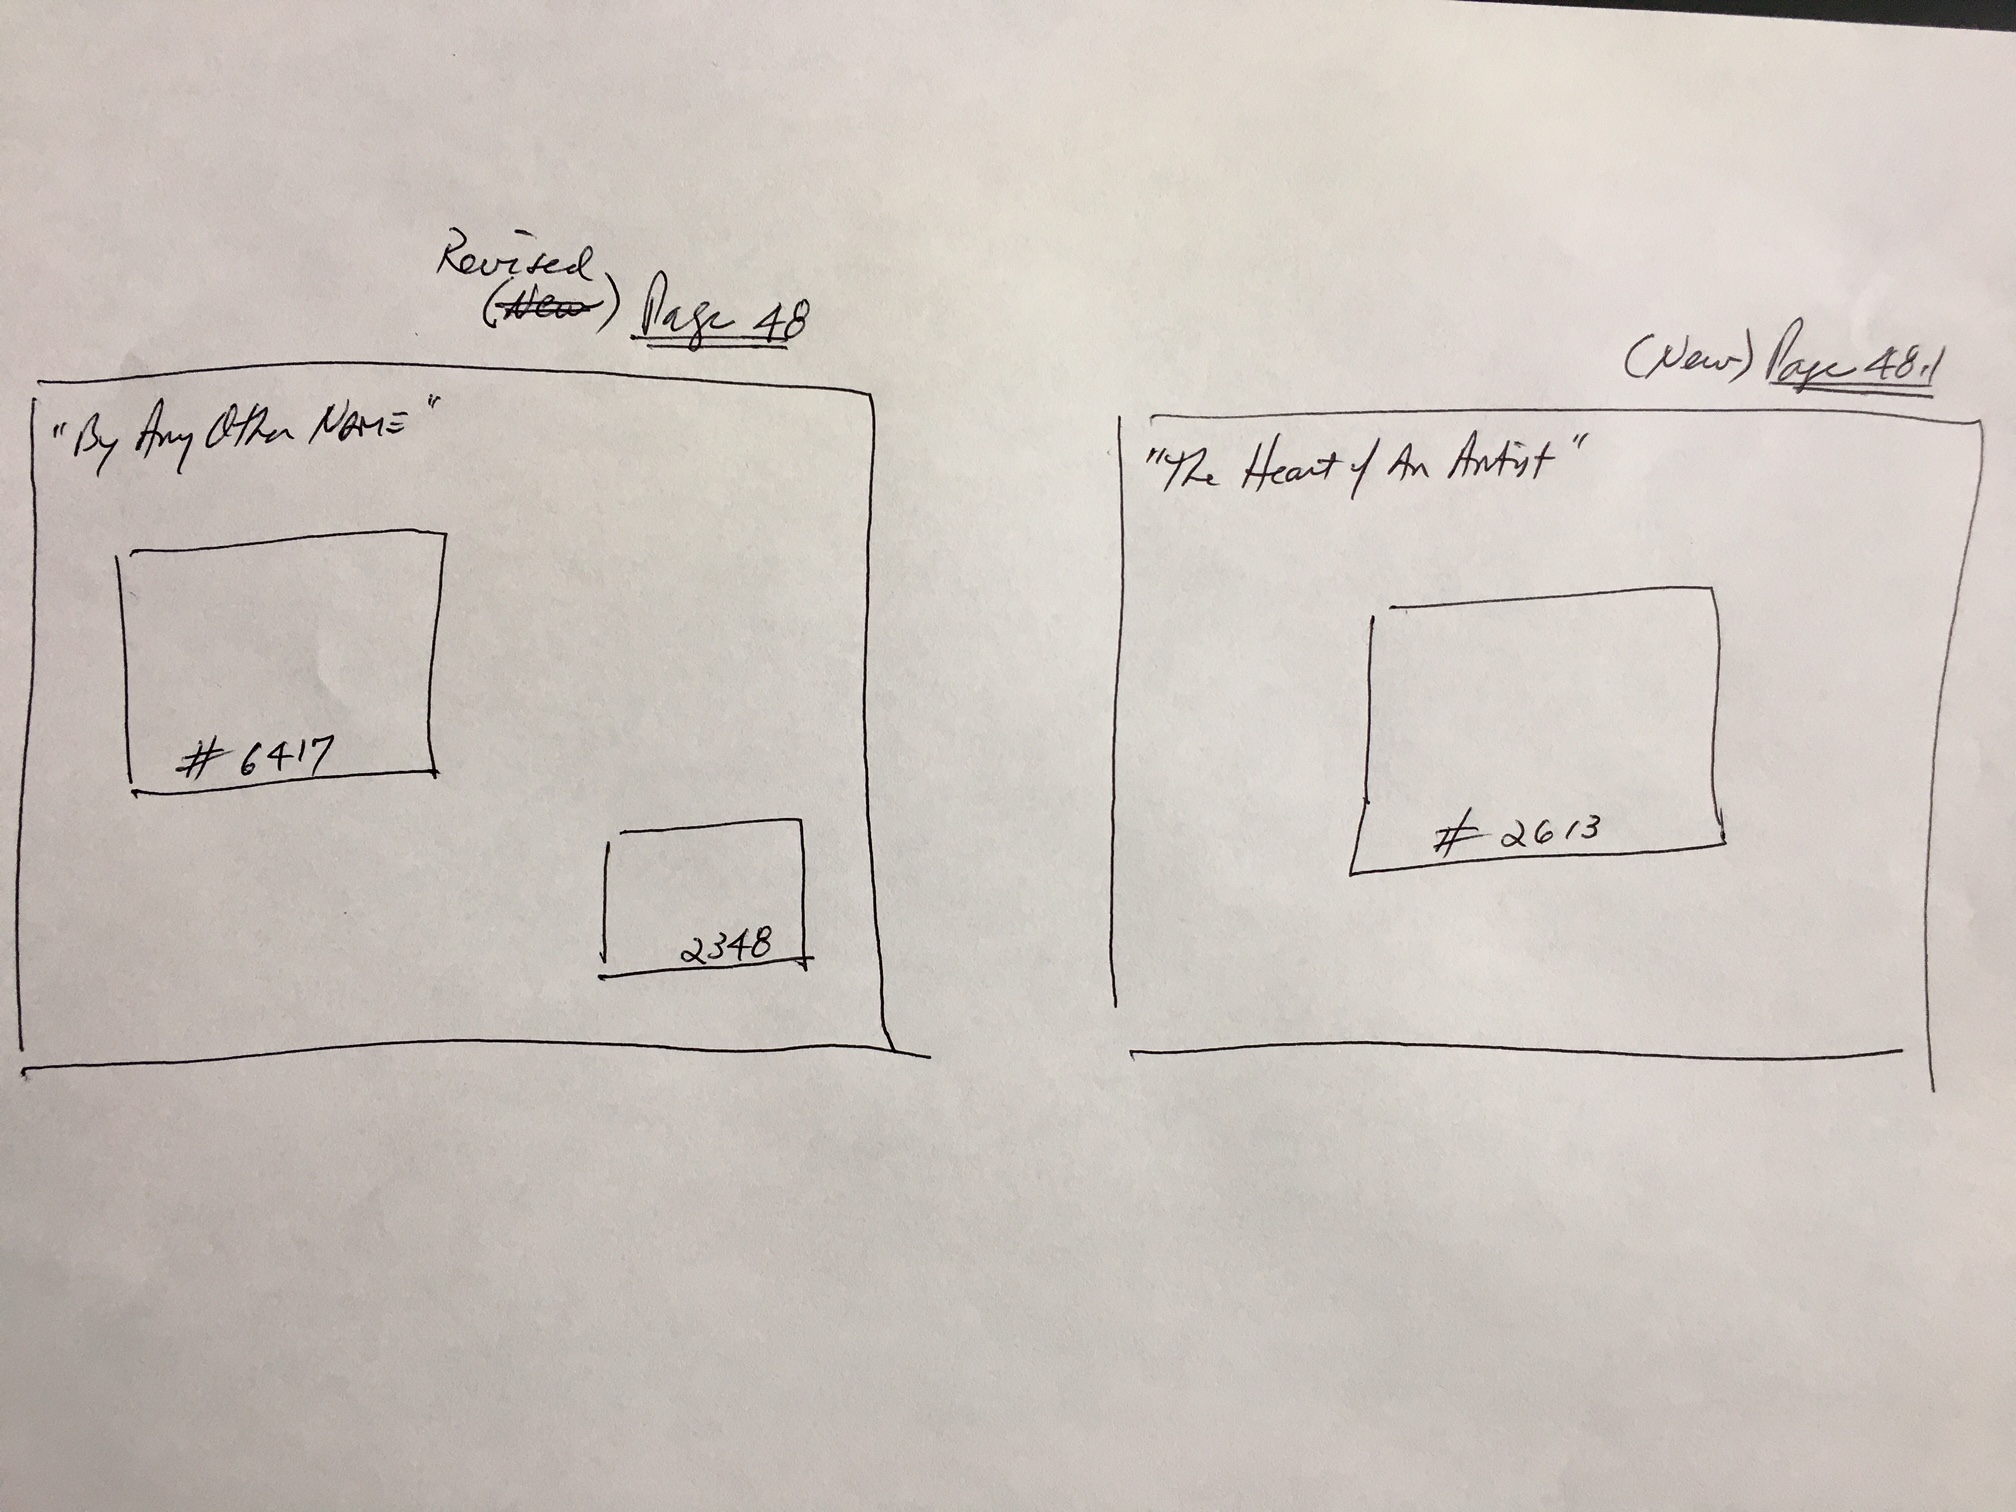 Revised
(New) Page 48
"By Any Other Name"
# 6417
2348
(New) Page 48.1
"The Heart of An Artist"
# 2613